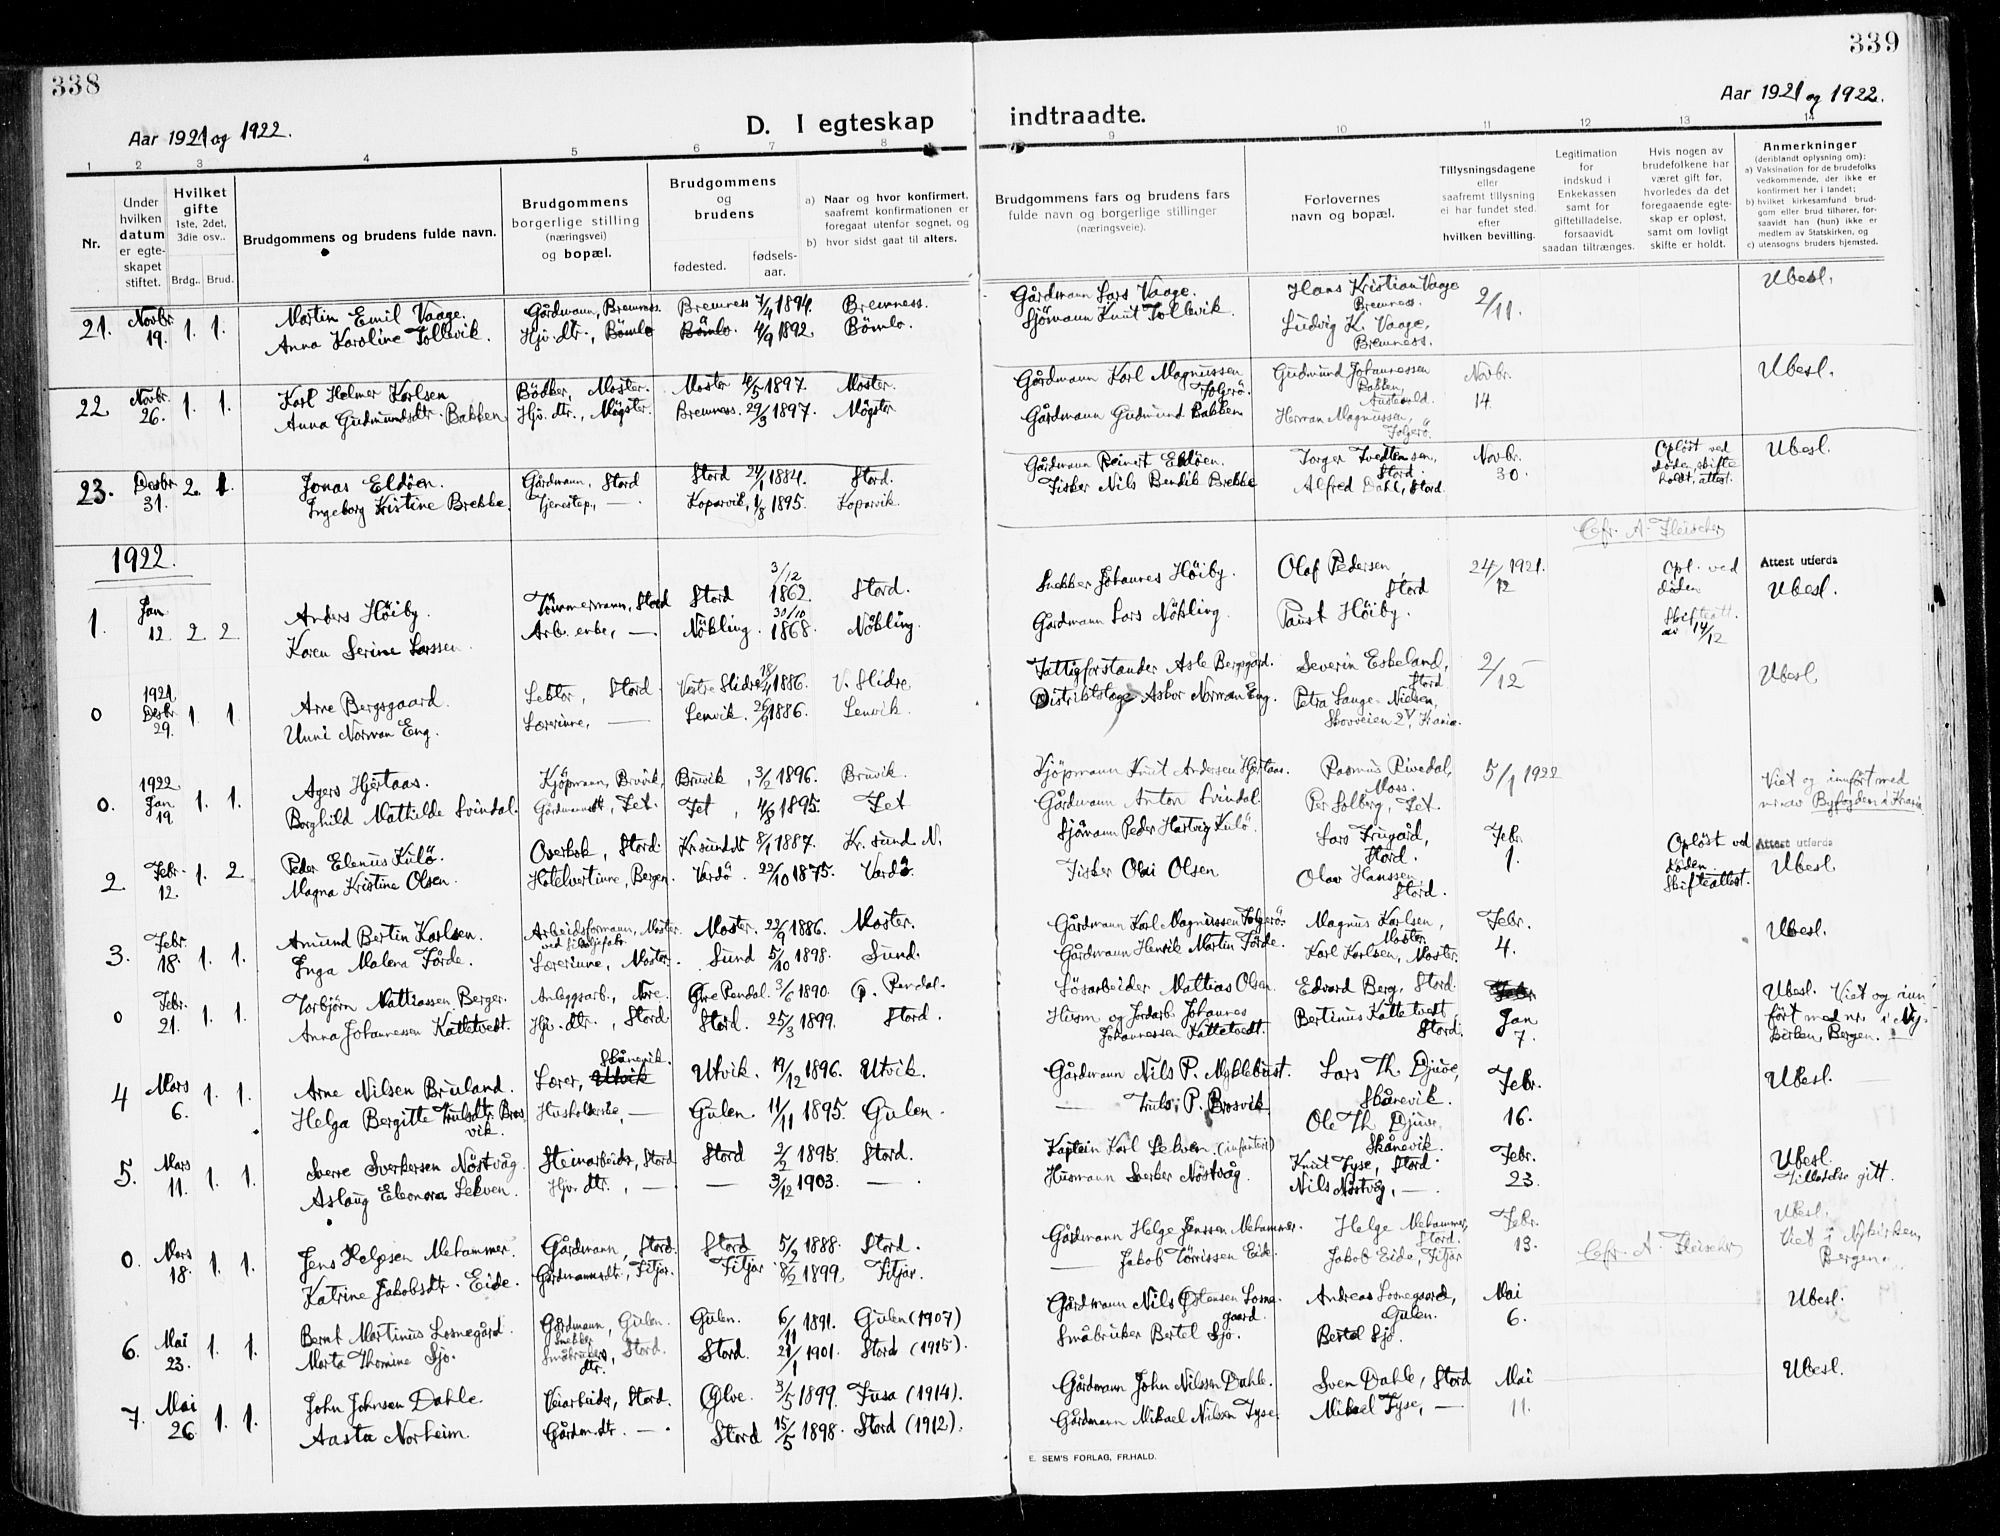 338
339
Aar 1921 og 1922.
D. I egteskap
indtraadte.
Aar 1921 og 1922.
1 2 3 4 5 6 7 8
9 10 11 12 13 14
Nr.
Under hvilken datum er egteskapet stiftet.
Hvilket gifte 1ste, 2det, 3die osv..
Brdg.. Brud.
Brudgommens og brudens fulde navn.
Brudgommens borgerlige stilling (næringsvei) og bopæl.
Brudgommens og brudens
fødested. fødselsaar.
a) Naar og hvor konfirmert, saafremt konfirmationen er foregaat utenfor sognet, og
b) hvor sidst gaat til alters.
Brudgommens fars og brudens fars fulde navn og borgerlige stillinger (næringsveie).
Forlovernes navn og bopæl.
Tillysningsdagene eller saafremt tillysning ei har fundet sted. efter hvilken bevilling.
Legitimation for indskud i Enkekassen samt for giftetilladelse, forsaavidt saadan tiltrænges.
Hvis nogen av brudefolkene har været gift før, hvorledes da det foregaaende egteskap er opløst, samt om lovligt skifte er holdt.
Anmerkninger (deriblandt oplysning om):
a) Vaksination for de brudefolks vedkommende, der ikke er konfirmert her i landet;
b) hvilket kirkesamfund brudgom eller brud tilhører, forsaavidt han (hun) ikke er medlem av Statskirken, og
c) utensogns bruders hjemsted.
21. Novbr. 19. 1. 1. Martin Emil Vaage. Gårdmann, Bremness. Bremness 7/4 1894. Bremness. Gårdmann Lars Vaage. Hans Kristian Vaage Bremness. 2/11. Ubesl.
Anna Karoline Tollevik. Hjv. dtr., Bömlo Bömlo. 4/9 1892. Bömlo. Sjömann Knut Tollevik. Ludvig K. Vaage, Bremness.
22. Novbr. 26. 1. 1. Karl Helmer Karlsen Bödker, Moster. Moster 4/5 1897. Moster. Gårdmann Karl Magnussen Folgerö. Gudmund Johannessen Bakken, Novbr. 14. Ubesl.
Anna Gudmundsdtr. Bakken Hjv. dtr., Mögster. Bremness. 29/3 1897. Mögster. Gårdmann Gudmund Bakken. Herman Magnussen, Folgerö.
23. Desbr. 31. 2. 1. Jonas Eldöen. Gårdmann, Stord Stord 24/1 1884. Stord. Gårdmann Reinert Eldöen. Torger Tvedten sen, Stord. Novbr. 30. Oplöst ved döden, skifte holdt, attest. Ubesl.
Ingeborg Kristine Brekke. Tjenestep., — Kopervik, 1/8 1895. Kopervik. Fisker Nils Bendik Brekke Alfred Dahl, Stord.
1922.
Cfr. A. Fleischer
1. Jan. 12. 2. 2. Anders Höiby. Tömmermann, Stord Stord 3/12 1862. Stord. Snekker Johannes Höiby. Olaf Pedersen, Stord 24/12 1921. Opl. ved döden Skifteatt. av 14/12 Attest utferda Ubesl.
Karen Serine Larssen. Arb. enke, — Nökling. 30/10 1868. Nökling. Gårdmann Lars Nökling. Paust Höiby.
0 1921. Desbr. 29. 1. 1. Arne Bergsgaard. Lektor, Stord. Vestre Slidre 18/4 1886. V. Slidre Fattigforstander Asle Bergsgård. Severin Eskeland, Stord 2/12 — Ubesl.
Unni Norman Eng. Lærerinne, — Lenvik. 26/9 1886. Lenvik. Distriktslæge Askor Norman Eng. Petra Lange-Nielsen, Skovveien 2V, Krania.
0. 1922 Jan. 19. 1. 1. Agers Hjertaas. Kjöpmann, Bruvik, Bruvik, 3/2 1896. Bruvik. Kjöpmann Knut Andersen Hjertaas. Rasmus Rivedal, Moss. 5/1 1922 Viet og innfört med nr. av Byfogden i Krania.
Borghild Mathilde Svindal. Gårdmannsdtr, Fet. Fet, 4/8 1895. Fet. Gårdmann Anton Svindal Per Solberg, Fet.
2. Febr. 12. 1. 2. Peder Elenius Kulö. Overkok, Stord. Kr.sund N 8/1 1887. Kr. sund. N. Sjömann Peder Hartvig Kulö. Lars Frugård, Stord. Febr. 1. Oplöst ved döden Skifteattest. Attest utferda Ubesl.
Magna Kristine Olsen. Hotelvertinne, Bergen. Vardö. 22/10 1875. Vardö. Fisker Olai Olsen Olav Hanssen, Stord.
3. Febr. 18. 1. 1. Amund Bertin Karlsen. Arbeidsformann, Moster. Moster. 22/9 1886. Moster. Gårdmann Karl Magnussen Folgerö. Magnus Karlsen, Moster. Febr. 4. Ubesl.
Inga Malena Förde. Lærerinne, Moster. Sund 5/10 1898. Sund. Gårdmann Henrik Martin Förde. Karl Karlsen, Moster.
0 Febr. 21. 1. 1. Torbjörn Mattiassen Berger. Anleggsarb., Øvre Øvre Rendal. 3/6 1890. Ø. Rendal. Lösarbeider Mattias Olsen. Edvard Berg, Stord. Jan 7. Ubesl. Viet og innfört med nr. i Nykirken, Bergen.
Anna Johannessen Kattetvedt. Hjv. dtr., Stord Stord. 25/3 1899. Stord. Husm og Jordarb. Johannes Johannessen Kattetvedt. Bertinus Kattetvedt, Stord.
4 Mars 6. 1. 1. Arne Nilsen Bruland. Lærer, Skånevik. Utvik. 19/12 1896. Utvik. Gårdmann Nils P. Myklebust. Lars Th. Djuve, Skånevik. Febr. 16. Ubesl.
Helga Bergitte Trulsdtr. Brosvik. Husholderske, — Gulen. 11/11 1895. Gulen. — Truls P. Brosvik. Ole Th. Djuve, Skånevik
5. Mars 11. 1. 1. Sverre Sverkersen Nöstvåg. Steinarbeider, Stord Stord 2/2 1895. Stord. Kaptein Karl Lekven. (infanteri) Knut Tyse, Stord. Febr. 23. Ubesl. Tilladelse gitt.
Aslaug Eleonora Lekven. Hjv. dtr., — — 3/12 1903. — Husmann Sverker Nöstvåg. Nils Nöstvåg, —.
0. Mars 18. 1. 1. Jens Helgesen Mehammer. Gårdmann, Stord. Stord 5/9 1888. Stord. Gårdmann Helge Janssen Mehammer. Helge Mehammer, Stord. Febr. 13. Cfr. A. Fleischer Ubesl. Viet i Nykirken, Bergen.
Katrine Jakobsdtr. Eide. Gårdmannsdtr, Fitjar. Fitjar 8/2 1899. Fitjar. — Jakob Törrissen Eide. Jakob Eide, Fitjar
6. Mai 23. 1. 1. Bernt Martinus Losnegård. Gårdmann, Gulen. Gulen. 6/11 1891. Gulen (1907) Gårdmann Nils Østensen Losnegaard. Andreas Losnegaard, Gulen. Mai 6. Ubesl.
Marta Thomine Sjo. Snekker Småbrukers dtr., Stord. Stord. 21/1 1901. Stord (1915). Småbruker Bertel Sjo. Bertel Sjo.
7. Mai 26. 1. 1. John Johnsen Dahle. Veiarbeider, Stord. Ølve. 3/5 1899. Fusa (1914). Gårdmann John Nilssen Dahle. Sven Dahle, Stord Mai 11. Ubesl.
Aasta Norheim. Gårdm.dtr. — Stord 15/5 1898. Stord (1912). Gårdmann Mikael Nilsen Tyse. Mikael Tyse, —
E. SEM'S FORLAG, FR.HALD.